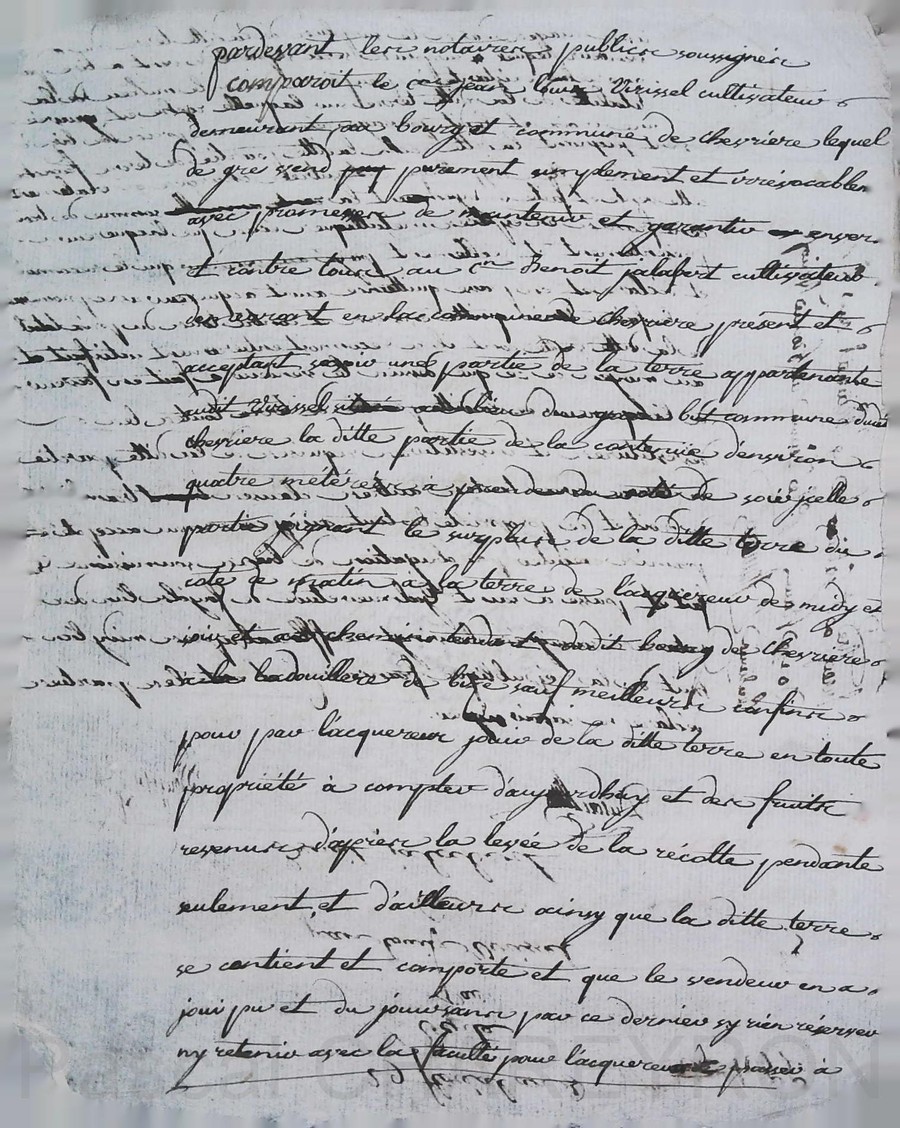 pardevant les notaires publics soussignés
comparoit le c.en jean Virissel cultivateur
demeurant au bourg et commune de chevriere lequel
de gre vend purement simplement et irrévocablem
avec promesse de maintenir et garantir enver
et contre tous au c.en Benoit jalabert cultivateur
demeurant en la commune de Chevriere présent et
acceptant savoir une partie de la terre appartenante
audit Virissel située commune dudit
chevriere la ditte partie de la contenüe d'environ
quatre métérées à prendre du coté de soir jcelle
partie joignant le surplus de la ditte terre du
coté de matin a la terre de l'acquereur de midy et
soir et au chemin tendant dudit bourg de Chevriere
à la badouillere de bize sauf meilleurs confins
pour par l'acquereur jouir de la ditte terre en toute
propriété à compter d'aujourdhuy et des fruits
revenus d'après la levée de la récolte pendante
seulement, et d'ailleurs ainsy que la ditte terre
se contient et comporte et que le vendeur en a
joui pu et du jouir sans par ce dernier sy rien réserver
ny retenir avec la faculté pour l'acquereur de passer à